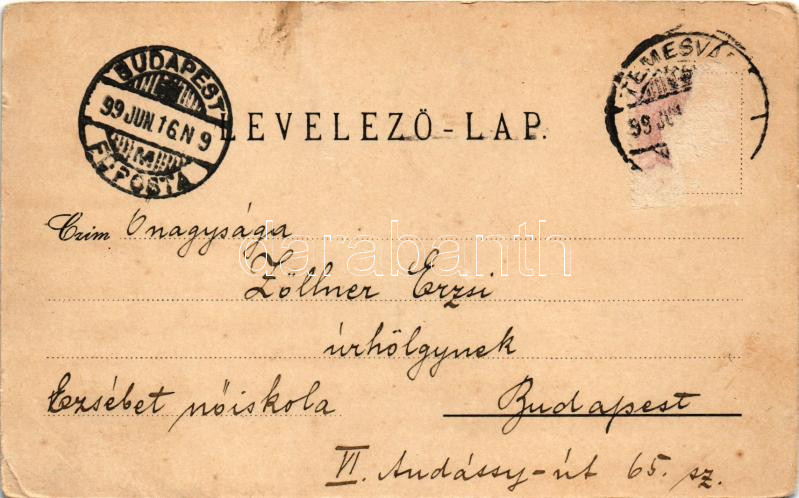 BUDAPEST
99 JUN. 16. N 9
FŐPOSTA
TEMESVÁR
99 JUN
LEVELEZŐ-LAP.
Czim Őnagysága
Zöllner Erzsi
úrhölgynek
Erzsébet nőiskola
Budapest
VI. Andássy-út 65. sz.
darabanth